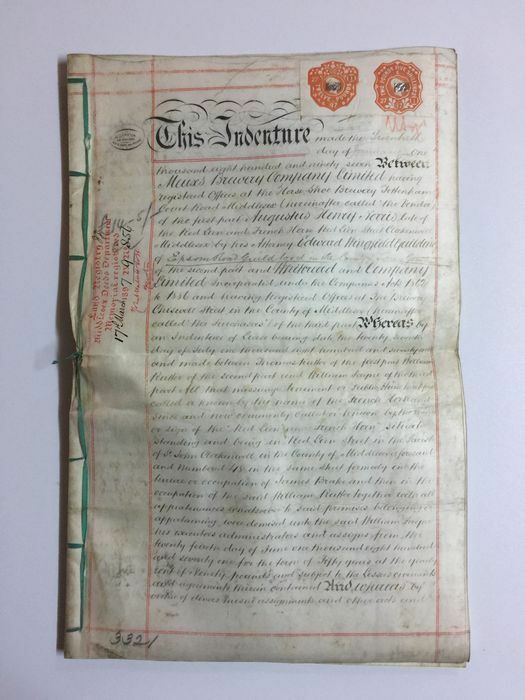 This Indenture made the
day of One
thousand eight hundred and ninety seven Between
Meux's Brewery Company Limited having
registered Offices at the Horse Shoe Brewery Tottenham
Court Road Middlesex (hereinafter called the Vendors)
of the first part Augustus Henry late of
the Red Lion and French Horn Red Lion Street Clerkenwell
Middlesex by his Attorney Edward Wingfield
of Epsom Road Guildford in the County of
of the second part and Whitbread and Company
Limited incorporated under the Companies Acts 1862
to 1886 and having Registered Offices at The Brewery
Chiswell Street in the County of Middlesex (hereinafter
called the Purchasers) of the third part Whereas by
an Indenture of Lease bearing date the twenty
day of July one thousand eight hundred and seventy one
and made between Thomas Rutter of the first part William
Rutter of the second part and William of the third
part All that messuage tenement or Public House
called or known by the name of the French Horn
since and now commonly called or known by the
or sign of the "Red Lion and French Horn" situate
standing and being in Red Lion Street in the Parish
of St. John Clerkenwell in the County of Middlesex aforesaid
and numbered 48 in the same street formerly in the
tenure or occupation of James Brake and then in the
occupation of the said William Rutter together with all
appurtenances whatsoever to said premises belonging or
appertaining were demised unto the said William
his executors administrators and assigns from the
twenty fourth day of June one thousand eight hundred
and seventy one for the term of Fifty years at the yearly
rent of Ninety pounds and subject to the Lessees covenants
and agreements therein contained And whereas by
virtue of divers mesne assignments and other acts and
Land Registry
Middlesex Deeds Department
Memorial registered
17th March 1897
3321